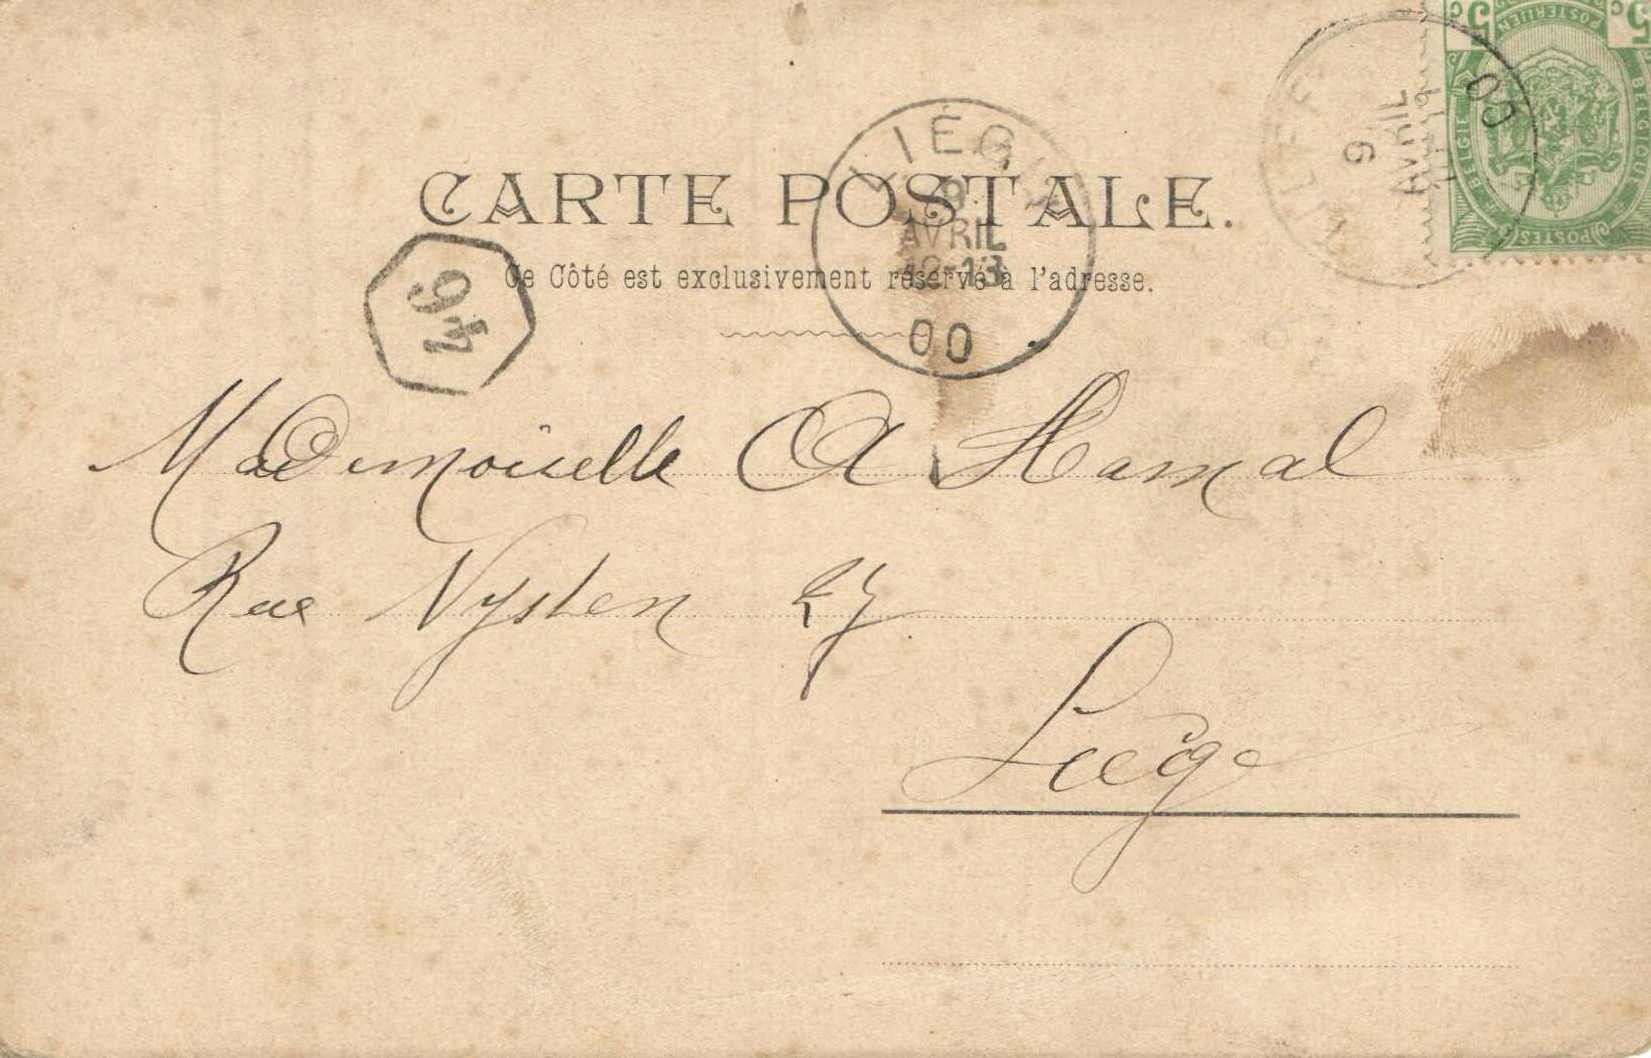 CARTE POSTALE.
Ce Côté est exclusivement réservé à l'adresse.
LIÉGE
9
AVRIL
12-13
00
46
9
AVRIL
00
5 c
POSTERIJEN
5 c
BELGIE
BELGIQUE
POSTES
Mademoiselle A Hamal
Rue Nysten 27
Liège